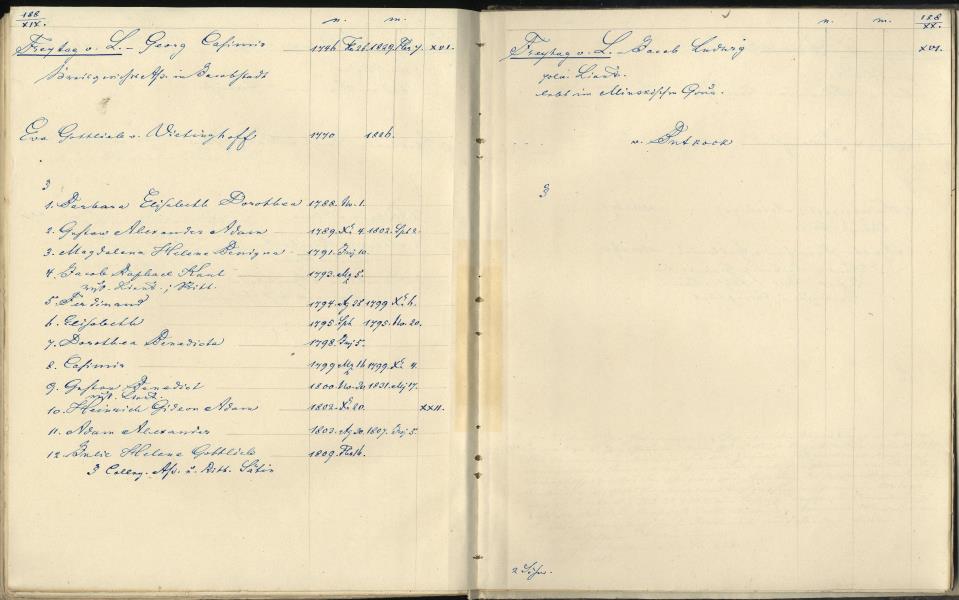 188
XIX.
n. m.
Freytag v. L. – Georg Casimir 1746. 1829. XVI.
Kreisgerichts Ass. in Jacobstadt
Eva Gottlieb v. Vietinghoff 1770 1826.
3
1. Barbara Elisabeth Dorothea 1788. Nv. 1.
2. Gustav Alexander Adam 1789. Xr. 4. 1802. Spt 2.
3. Magdalena Helena Benigna 1791. Juj 10.
4. Jacob Raphael 1793. Mz 5.
russ. Lieut.; Ritt.
5. Ferdinand 1794. Ag 28 1799 Xr. 6.
6. Elisabeth 1795. Spt 1795. No. 20.
7. Dorothea Benedicta 1798. Juj 5.
8. Casimir 1799 Mz 16 1799. Xr 4.
9. Gustav Benedict 1800. 1831. Aj 17.
russ. Lieut.
10. Heinrich Gideon Adam 1802. Xr 20. XXII.
11. Adam Alexander 1803. Ag 30. 1807. Juj 5.
12. Julie Helena Gottlieb 1809. Fbr 16.
3 Colleg. Ass. u. Ritt.
n. m. 188
XX.
Freytag v. L. – Jacob Ludwig XVI.
poln. Lieut.
lebt im Minskischen Gouv.
v. Butkock
3
2 Söhne.